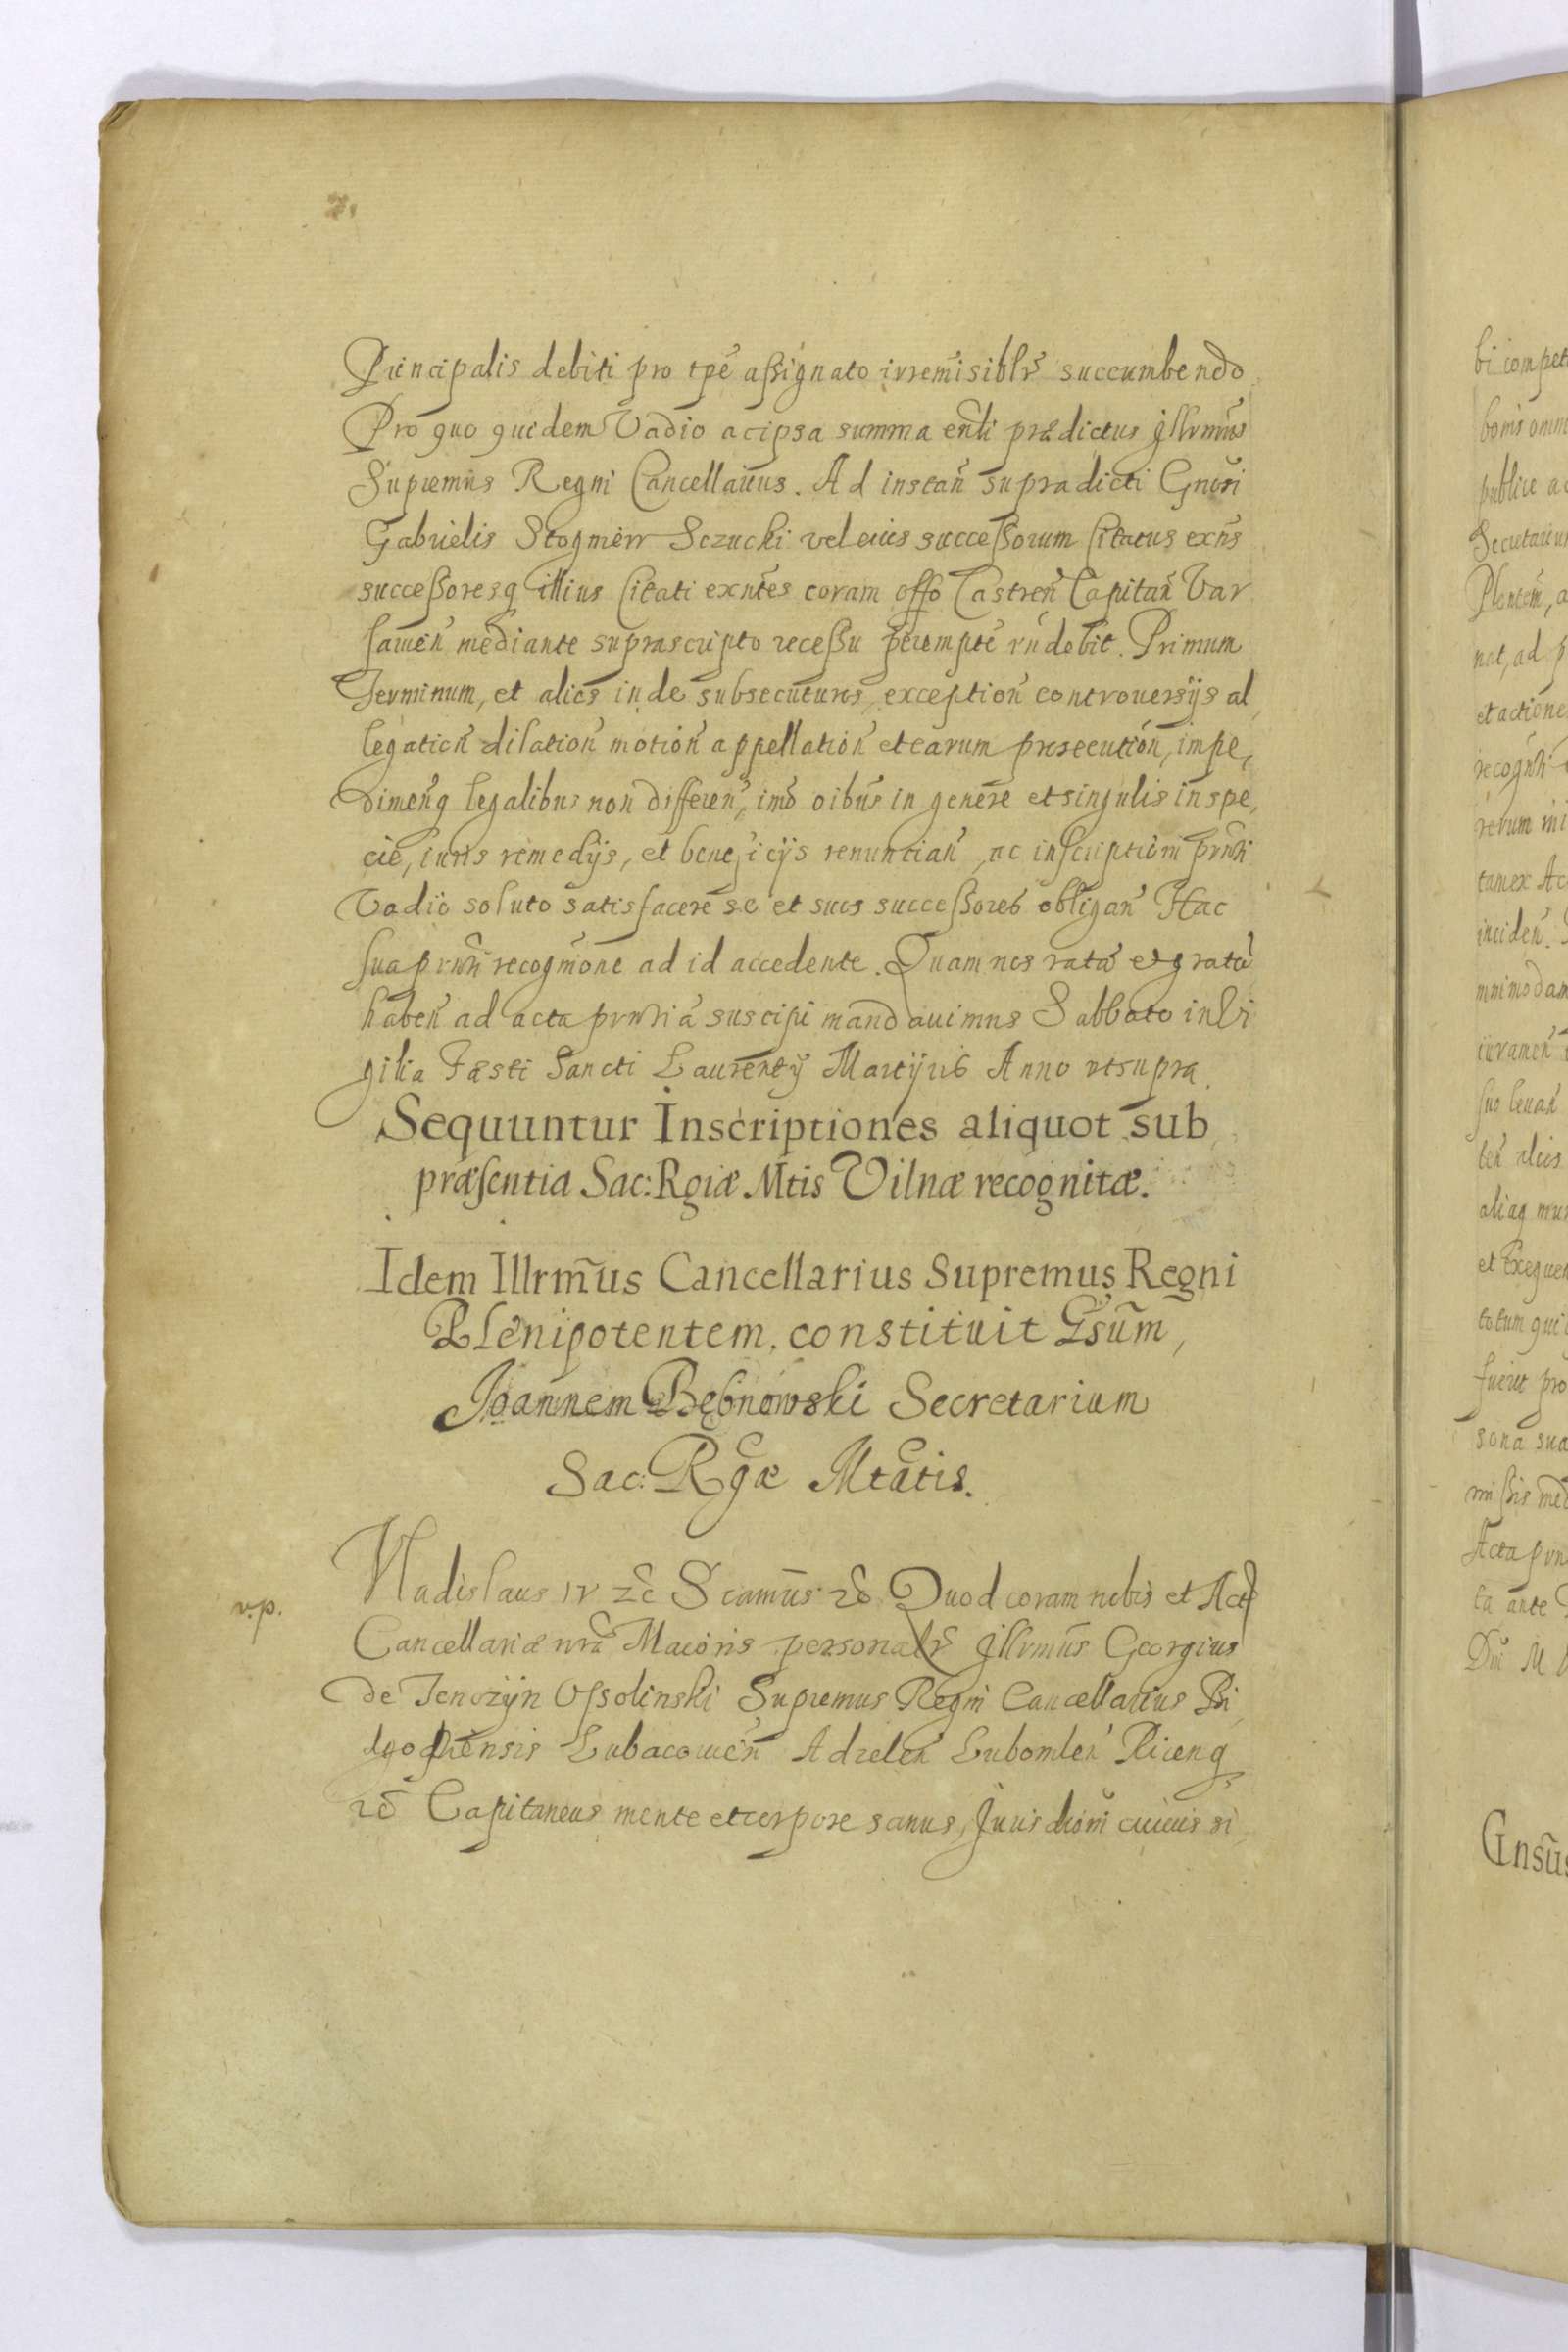 Principalis debiti pro tpe aßignato irremisiblr succumbendo
Pro quo quidem Vadio ac ipsa summa prædictus Illrmus
Supremus Regni Cancellarius. Ad instan supradicti Gnosi
Gabrielis Stogniew Sczucki vel eius succeßorum Citatus exns
succeßoresq illius Citati exntes coram offo Castren Capitan Var
savien mediante suprascripto receßu perempte rndebit. Primum
Terminum, et alios inde subsecuturos, exception controversijs al
legation dilation motion appellation et earum prosecution, impe,
dimenq legalibus non differen, imo oibus in genere et singulis in spe,
cie, iuris remedijs, et beneficijs renuntian, ac inscriptioni prnti
Vadio soluto satisfacere se et suos succeßores obligan Hac
sua prnti recognione ad id accedente. Quam nos rata et grata
haben ad acta prntia suscipi mandavimus Sabbato in Vi
gilia Fæsti Sancti Laurentij Martijris Anno ut supra.
Sequuntur Inscriptiones aliquot sub
præsentia Sac: Rgiæ Mtis Vilnæ recognitæ.
Idem Illrmus Cancellarius Supremus Regni
Plenipotentem constituit Gsum,
Joannem Bębnowski Secretarium
Sac: Rgæ Mtatis.
v.p.
Vladislaus IV &c Scamus &c Quod coram nobis et Actis
Cancellariæ nra Maioris personalr Illrmus Georgius
de Tenczyn Ossolinski Supremus Regni Cancellarius Bi
dgostiensis Lubacovien Adzelen Lubomlen Riceng
&c Capitaneus mente et corpore sanus, Juris dioni cuiuis si
bi compet
bonis omn
publice ac
Secretariu
Plenten, a
nat, ad p
et actione
recognti
rerum
tam ex Ac
inciden.
mnimodam
iuramen
suo levan
ten alios
aliaq mun
et Exequen
totum qui
fuerit pro
sona sua
mißis med
Acta prn
ta ante
Din M
Gnsus